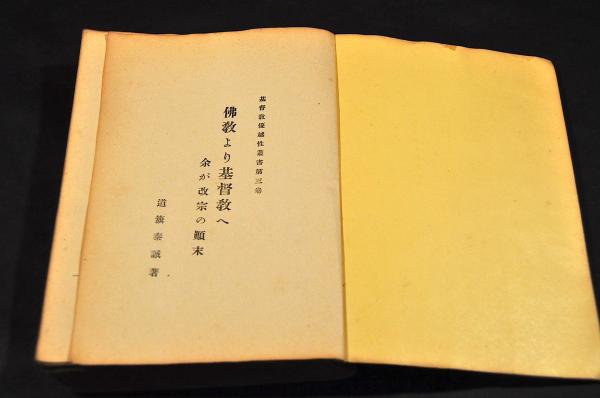 基督教優越性叢書第三卷
佛教より基督教へ
余が改宗の顚末
道籏泰誠著